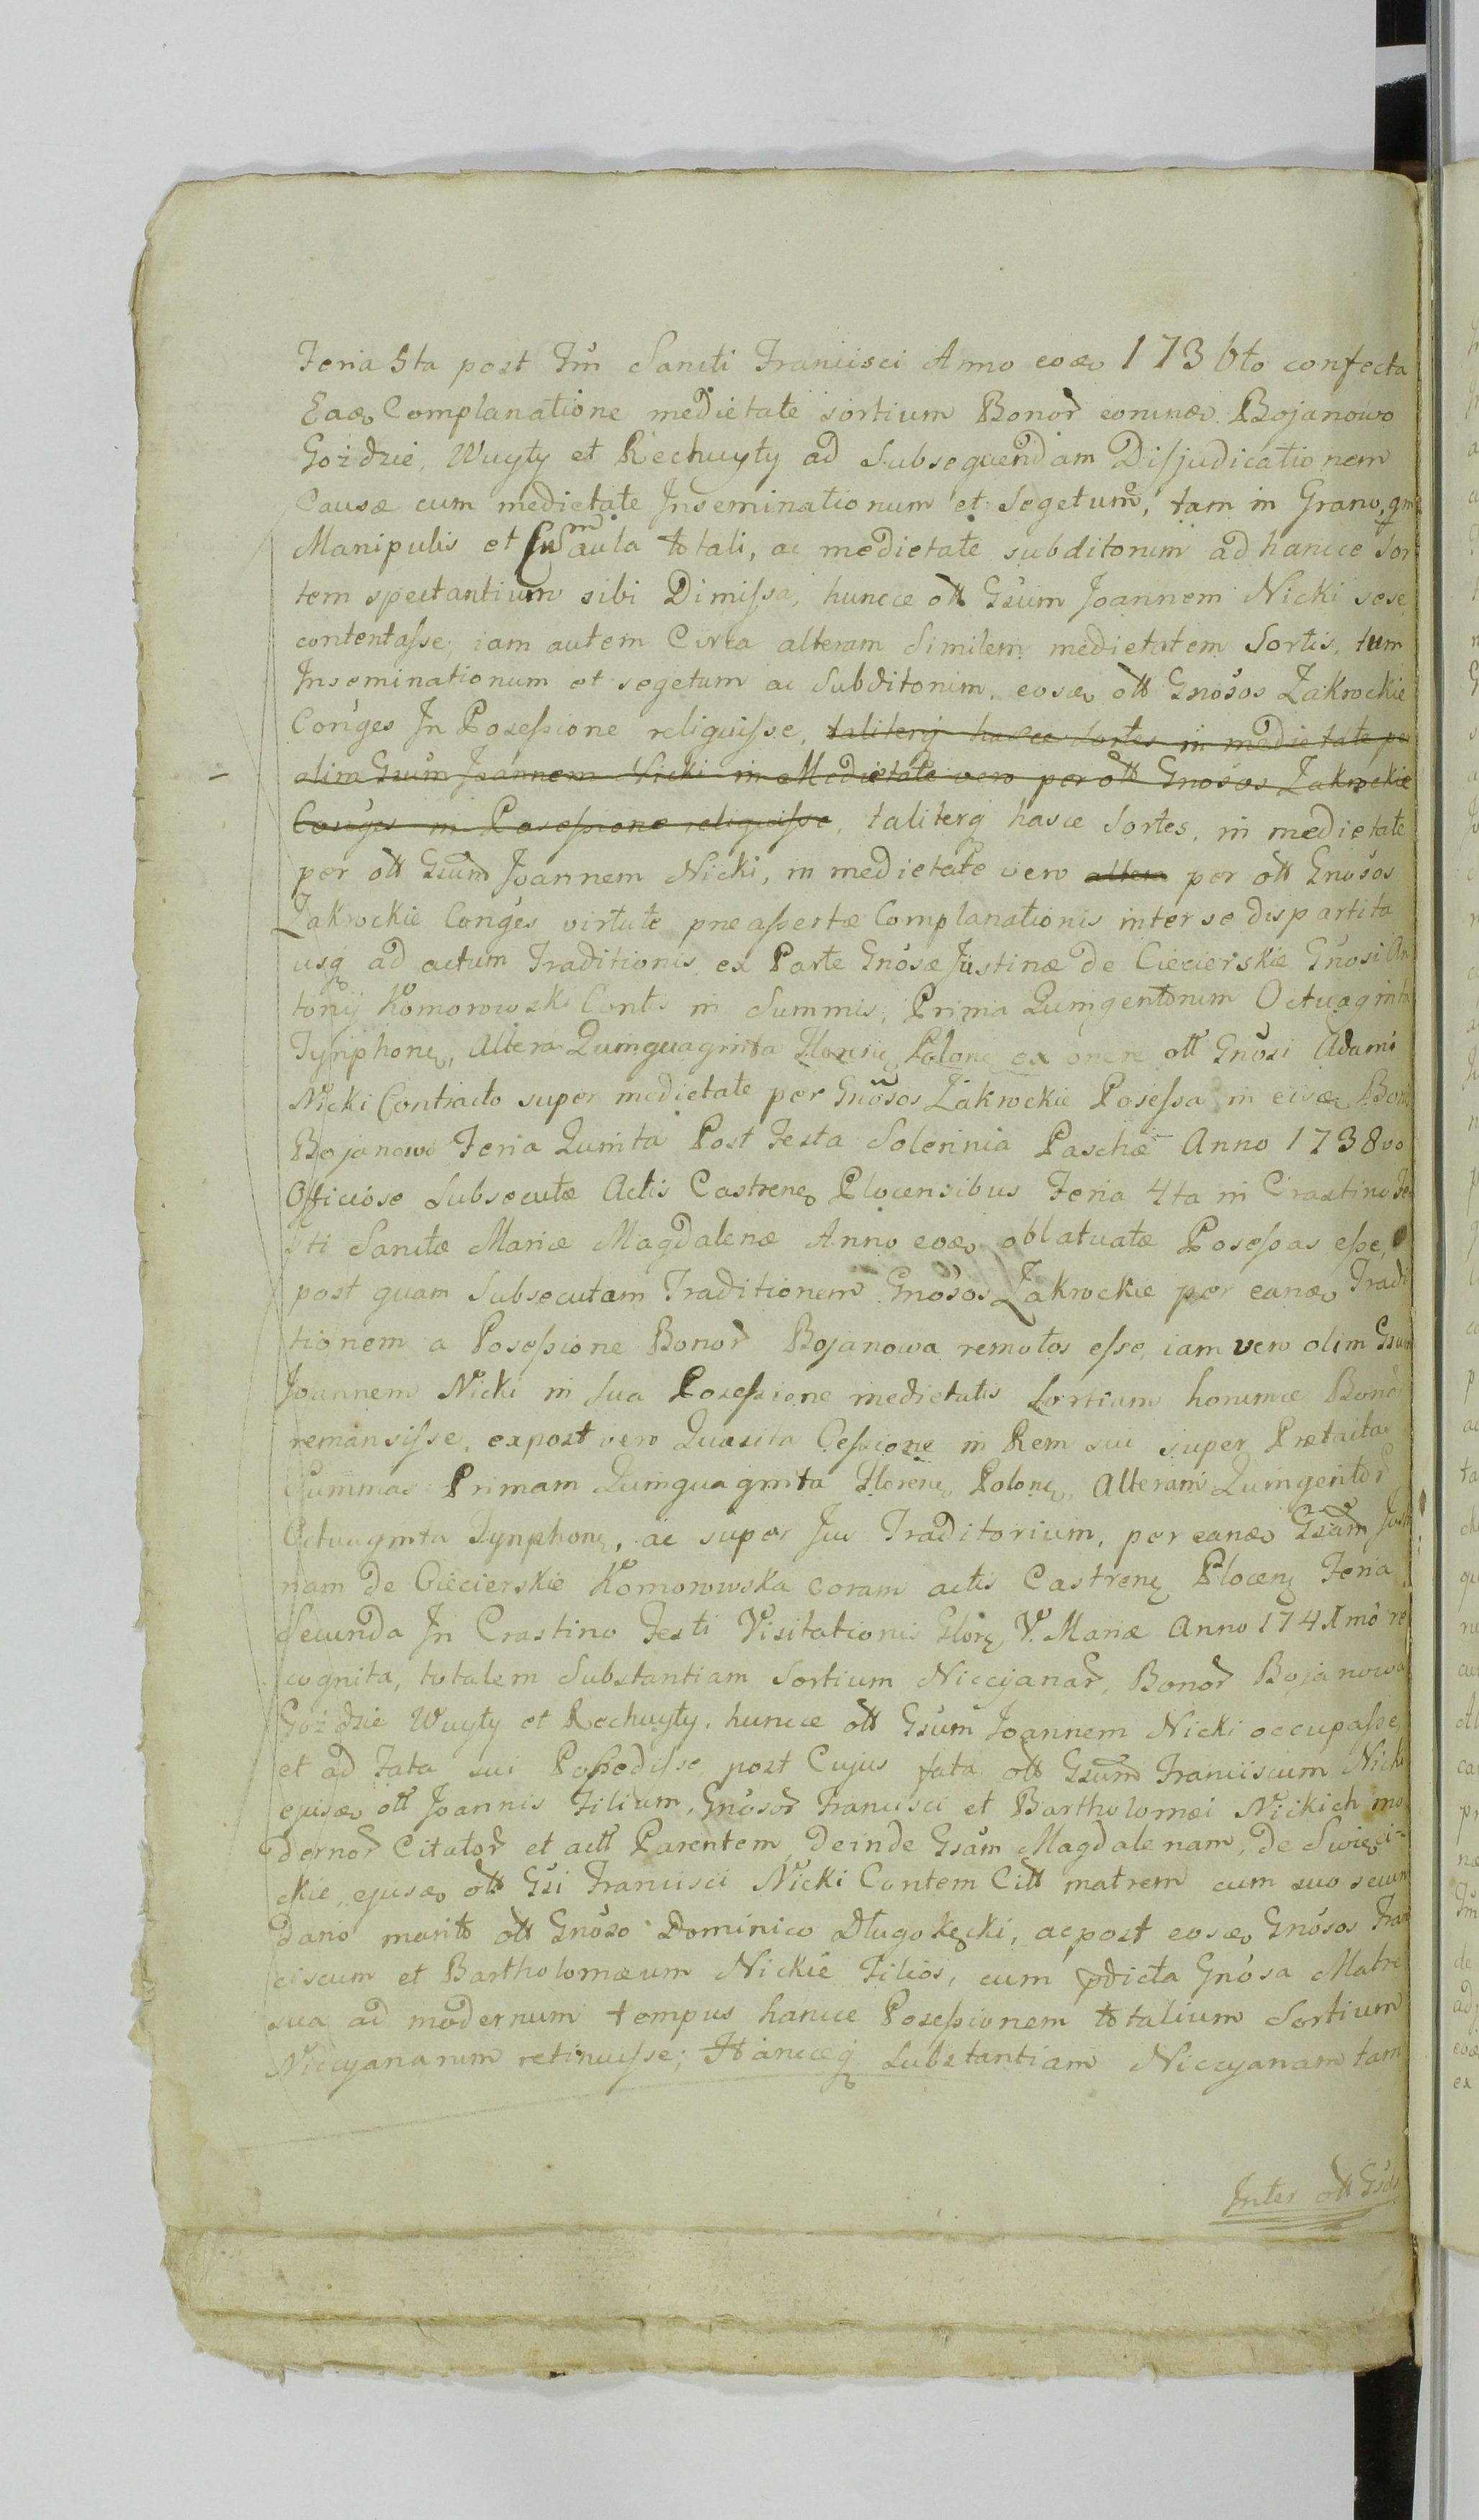 Feria 5ta post Fm̃ Sancti Francisci Anno eodē 1736to confecta
Eadē Complanatione medietate sortium Bonoȓ eorumdē Bojanowo
Goździe, Wuyty et Rechuyty ad Subsequendam Disjudicationem
Causæ cum medietate Inseminationum et Segetum, tam in Grano, qm̃
Manipulis et cum aula totali, ac medietate subditorum ad hancce Sor
tem spectantium sibi Dimissa, huncce oll Gsum Joannem Nicki sese
contentasse; iam autem Circa alteram Similem medietatem Sortis, tum
Inseminationum et segetum ac Subditorum, eosdē oll Gnosos Zakrockie
Conges In Possessione reliquisse, taliterq hasce Sortes in medietate per
olim Gsum Joannem Nicki in Medietate vero per oll Gnosos Zakrockie
Conges in Possessione reliquisse, taliterq hasce Sortes, in medietate
per oll Gsum Joannem Nicki, in medietate vero altera per oll Gnosos
Zakrockie Conges virtute præassertæ Complanationis inter se dispartita
usq ad actum Traditionis ex Parte Gnosæ Justinæ de Ciecierskie Gnosi An
tonij Komorowski Contis in Summis, Prima Quingentorum Octuaginta
Tynphonę, Altera Quinquaginta Florenę Polonę ex onere oll Gnosi Adami
Nicki Contracto super medietate per Gnosos Zakrockie Posessa in eisdę Bonis
Bojanowo Feria Quinta Post Festa Solennia Paschæ Anno 1738vo
Officiose Subsecutæ Actis Castrenę Plocensibus Feria 4ta in Crastino Fe
sti Sanctæ Mariæ Magdalenæ Anno eodē oblatuatæ Posessas esse,
post quam Subsecutam Traditionem Gnosos Zakrockie per eandē Tradi
tionem a Posessione Bonoȓ Bojanowa remotos esse, iam vero olim Gsum
Joannem Nicki in Sua Posessione medietatis Sortium horumce Bonoȓ
remansisse, expost vero Quæsita Cessione in Rem sui super Prætactas
Summas Primam Quinquaginta Florenę Polonę, Alteram Quingentoȓ
Octuaginta Tynphonę, ac super Jus Traditorium, per eandē Gsam Justi
nam de Ciecierskie Komorowska coram actis Castrenę Plocenę Feria
Secunda In Crastino Festi Visitationis Glorę V. Mariæ Anno 1741mo re
cognita, totalem Substantiam Sortium Niccyanaȓ, Bonoȓ Bojanowa
Goździe Wuyty et Rechuyty, huncce oll Gsum Joannem Nicki occupasse,
et ad Fata sui Possedisse, post Cujus fata oll Gsum Franciscum Nicki
ejusdē oll Joannis Filium, Gnosoȓ Francisci et Bartholomæi Nickich mo
dernoȓ Citatoȓ et actl Parentem, deinde Gsam Magdalenam, de Swięci-
ckie, ejusdē oll Gsi Francisci Nicki Contem Citt matrem cum suo secun
dario marito oll Gnoso Dominico Długokęcki, ac post eosdē Gnosos Fran
ciscum et Bartholomæum Nickie Filios, cum pdicta Gnosa Matre
sua ad modernum tempus hancce Posessionem totalium Sortium
Niccyanarum retinuisse; Hancceq Substantiam Niccyanam tam
Inter oll Gsos